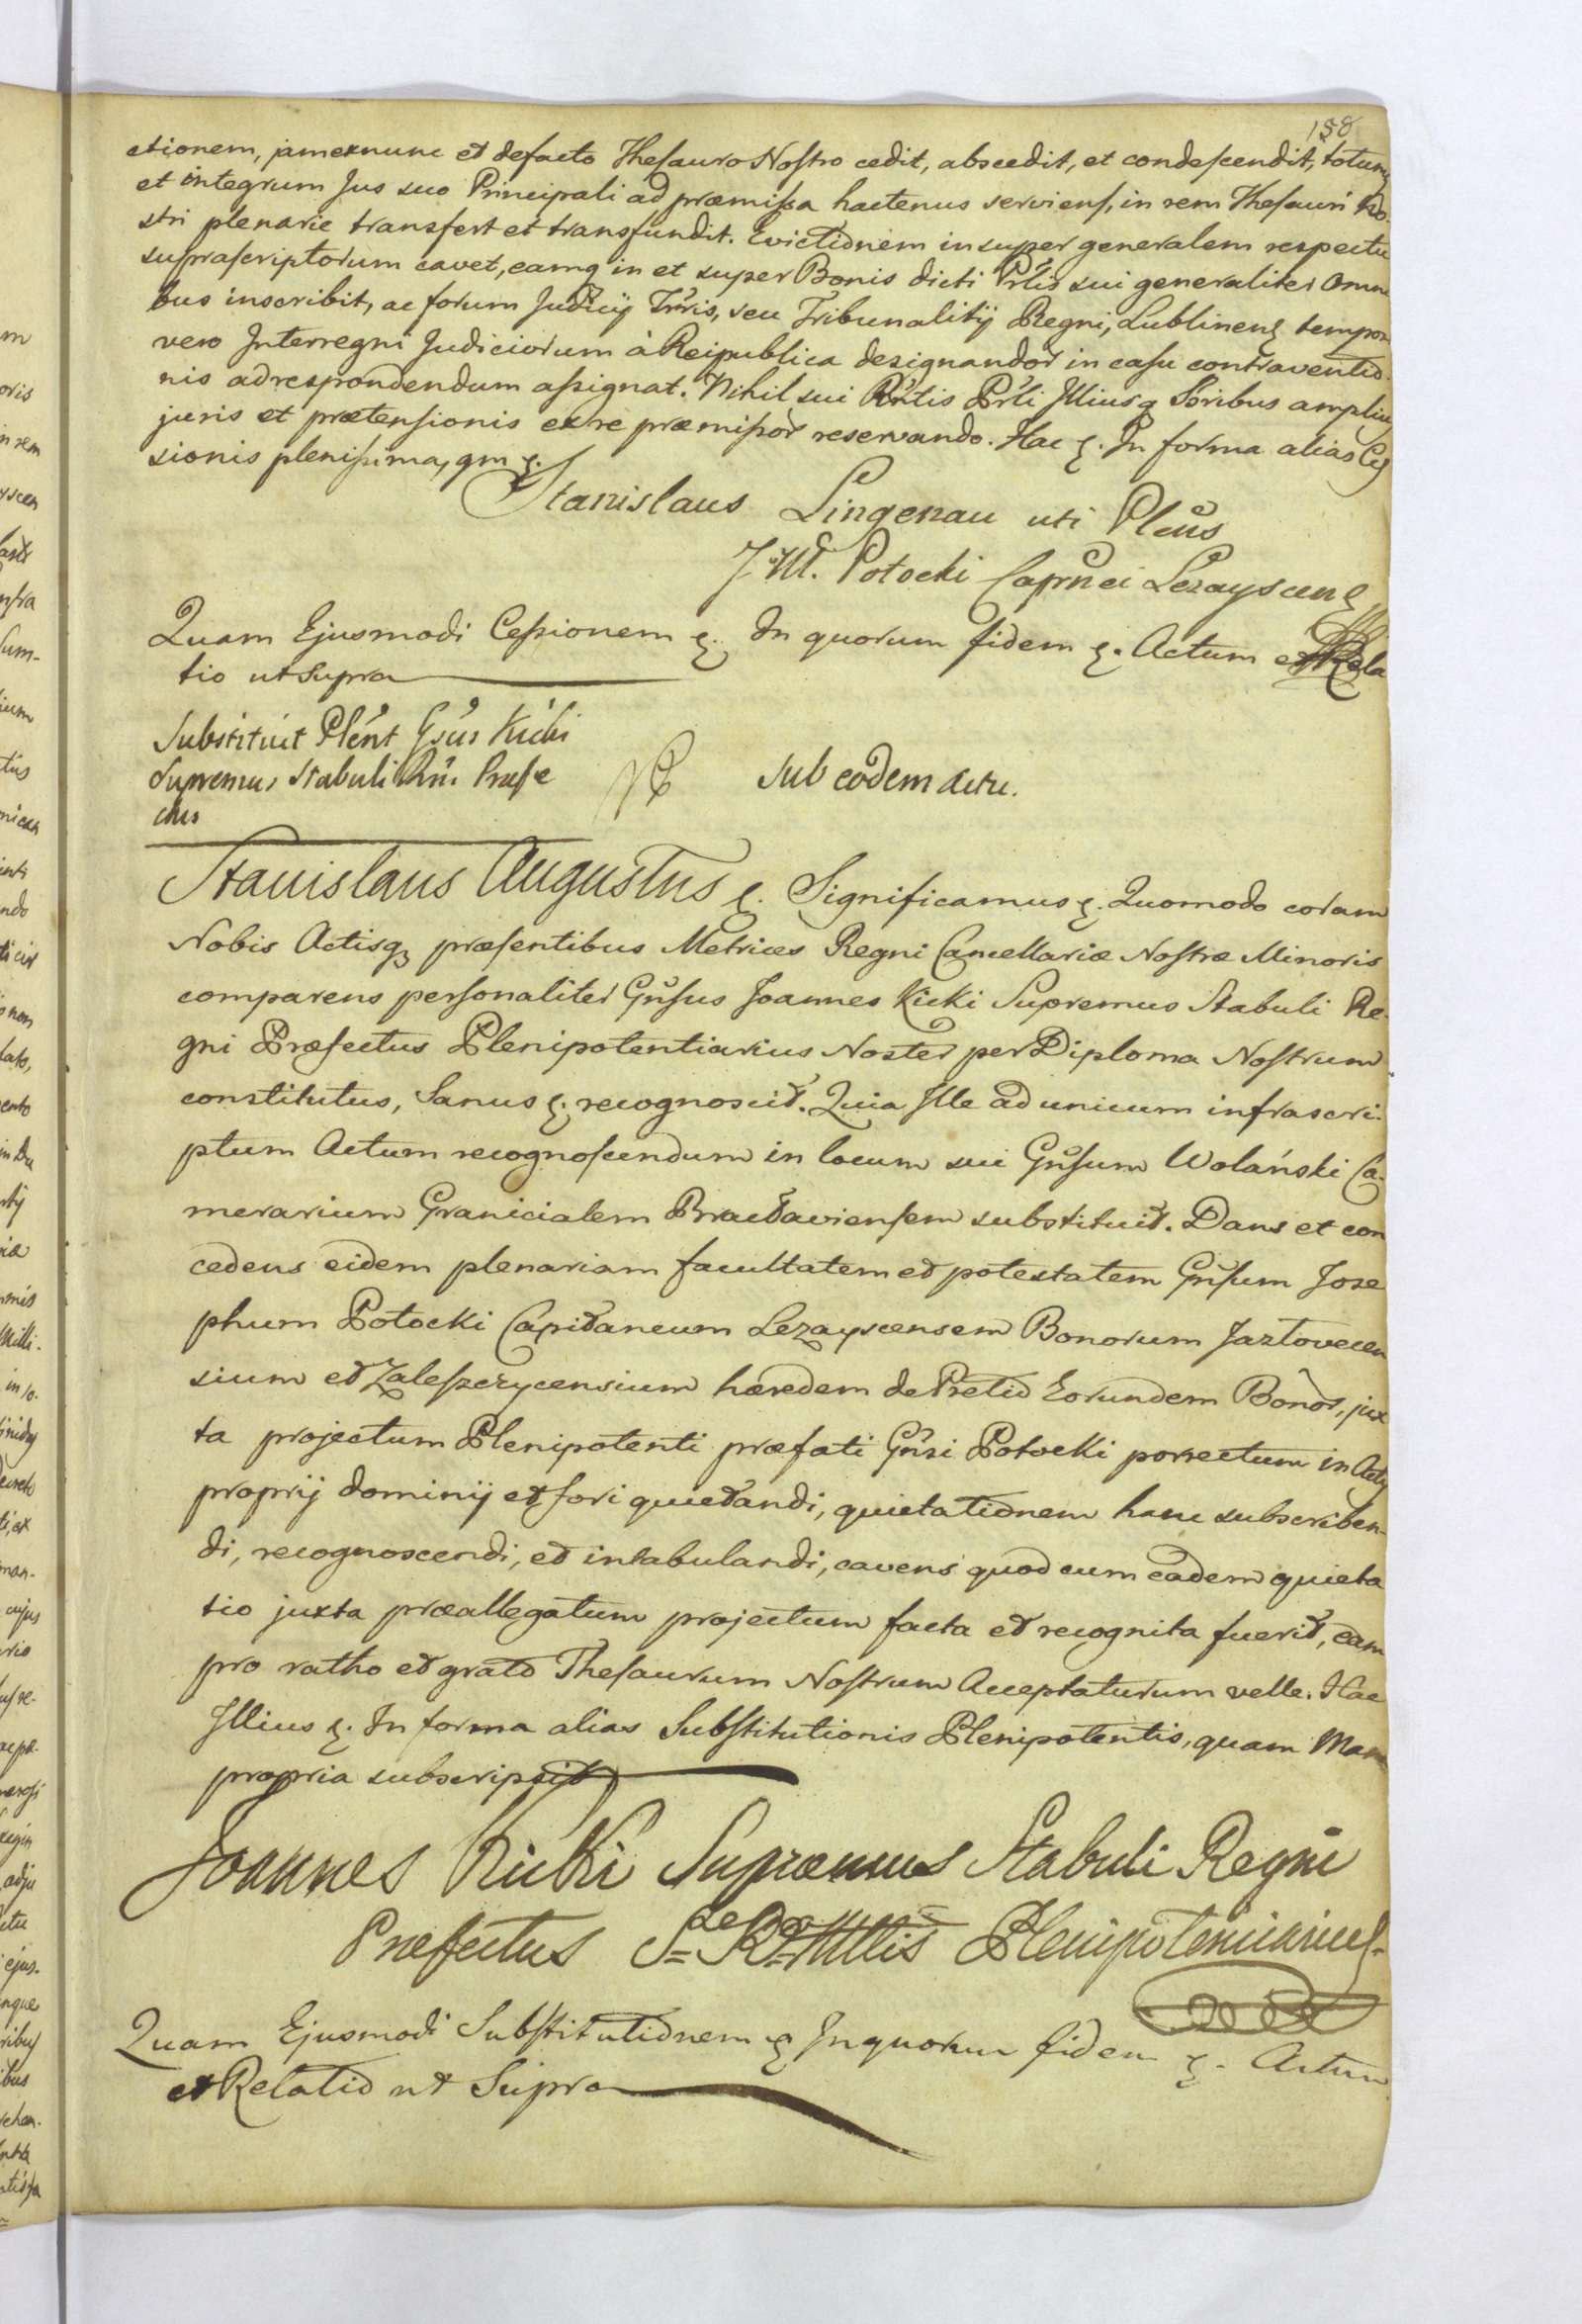 158
ctionem, jamexnunc et defacto Thesauro Nostro cedit, abscedit, et condescendit, totum
et integrum Jus suo Principali ad præmissa hactenus serviens, in rem Thesauri No-
stri plenarie transfert et transfundit. Evictionem insuper generalem respectu
suprascriptorum cavet, eamq in et super Bonis dicti Prlis sui generaliter omni
bus inscribit, ac forum Judicij Trris, seu Tribunalitij Regni, Lublinens tempore
vero Interregni Judiciorum à Reipublica designandor in casu contraventio-
nis adrespondendum assignat. Nihil sui Prlis Illiusq Soribus amplius
juris et prætensionis exre præmissor reservando. Hac &. In forma alias Ces
sionis plenissima, qm &.
Stanislaus Lingenau uti Plens
J. W. Potocki Caprnei Lezayscens
Quam Ejusmodi Cessionem &. In quorum fidem &. Actum et Rela
tio ut supra
Substituit Plent Gsus Kicki
Supremus Stabuli Rni Præfe
ctus
Sub eodem actu.
Stanislaus Augustus &. Significamus &. Quomodo coram
Nobis Actisq præsentibus Metrices Regni Cancellariæ Nostræ Minoris
comparens personaliter Gnsus Joannes Kicki Supremus Stabuli Re-
gni Præfectus Plenipotentiarius Noster per Diploma Nostrum
constitutus, Sanus &. recognoscit. Quia Ille ad unicum infrascri-
ptum Actum recognoscendum in locum sui Gnsum Wolański Ca-
merarium Granicialem Bracłaviensem substituit. Dans et con
cedens eidem plenariam facultatem et potestatem Gnsum Jose
phum Potocki Capitaneum Lezayscensem Bonorum Jazłovecen
sium et Zaleszczycensium hæredem de Pretio Eorundem Bonor, jux
ta projectum Plenipotenti præfati Gnsi Potocki porrectum in Actis
proprij dominij et fori quietandi, quietationem hanc subscriben-
di, recognoscendi, et intabulandi, cavens quod cum eadem quieta
tio juxta præallegatum projectum facta et recognita fuerit, eam
pro ratho et grato Thesaurum Nostrum Acceptaturum velle. Hac
Illius &. In forma alias Substitutionis Plenipotentis, quam Manu
propria subscripsit
Joannes Kicki Supraemus Stabuli Regni
Præfectus Plenipotentiarius
Quam Ejusmodi Substitutionem & Inquorum fidem &. Actum
et Relatio ut Supra